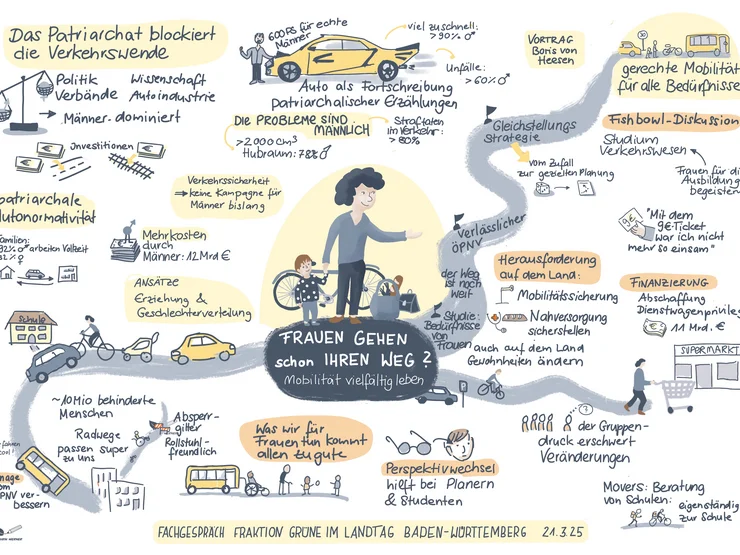 Das Patriarchat blockiert
die Verkehrswende
Politik
Verbände
Wissenschaft
Autoindustrie
Männer-dominiert
Investitionen
€
€
€
€
600 PS für echte
Männer
viel zu schnell:
>90% ♂
Unfälle:
>60% ♂
Auto als Fortschreibung
patriarchalischer Erzählungen
DIE PROBLEME SIND
MÄNNLICH
Straftaten
im Verkehr:
> 80%
>2000 cm³
Hubraum: 78% ♂
VORTRAG
Boris von
Heesen
gerechte Mobilität
für alle Bedürfnisse
Gleichstellungs
strategie
vom Zufall
zur gezielten Planung
Fishbowl-Diskussion
Studium
Verkehrswesen
Frauen für di
Ausbildung
begeistern
"Mit dem
9€-Ticket
war ich nicht
mehr so einsam"
Verkehrssicherheit
⇒ keine Kampagne für
Männer bislang
patriarchale
Autonormativität
Familien:
92% ♂ arbeiten Vollzeit
32% ♀
€
Mehrkosten
durch
Männer: 12 Mrd €
ANSÄTZE
Erziehung &
Geschlechterverteilung
verlässlicher
ÖPNV
der Weg
ist noch
weit
Studie:
Bedürfnisse
von
Frauen
Herausforderung
auf dem Land:
Mobilitätssicherung
Nahversorgung
sicherstellen
auch auf dem Land
Gewohnheiten ändern
FINANZIERUNG
Abschaffung
Dienstwagenprivileg
€
11 Mrd. €
SUPERMARKT
SCHULE
FRAUEN GEHEN
schon IHREN WEG?
Mobilität vielfältig leben
P
~10 Mio behinderte
Menschen
Radwege
passen super
zu uns
Absperr-
gitter
Rollstuhl-
freundlich
Was wir für
Frauen tun kommt
allen zugute
Perspektivwechsel
hilft bei Planern
& Studenten
der Gruppen-
druck erschwert
Veränderungen
?
fahren
cool!
Image
vom
ÖPNV ver-
bessern
Movers: Beratung
von Schulen:
eigenständig
zur Schule
FACHGESPRÄCH FRAKTION GRÜNE IM LANDTAG BADEN-WÜRTTEMBERG 21.3.25